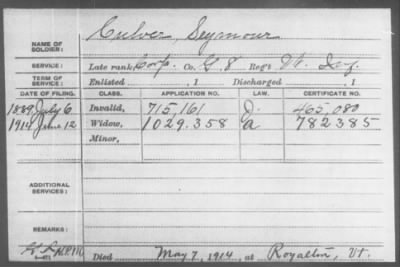 Culver, Seymour
NAME OF SOLDIER:
SERVICE: Late rank, Corp. Co. G. 8 Reg't Vt. Inf.
TERM OF SERVICE: Enlisted , 1 Discharged , 1
DATE OF FILING. CLASS. APPLICATION NO. LAW. CERTIFICATE NO.
1889 July 6 Invalid, 715,161 465,080
1914 June 12 Widow, 1029.358 a 782385
Minor,
ADDITIONAL SERVICES:
REMARKS:
Died May 7, 1914, at Royalton, Vt.